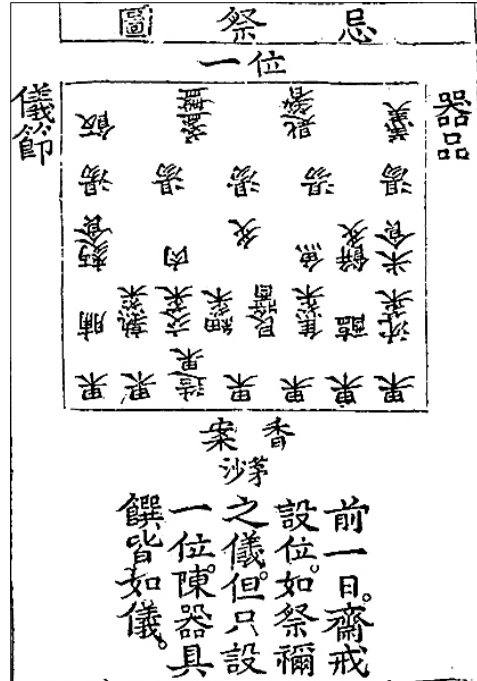 忌祭圖
位一
器品
羹 匙箸 盞盤 飯
湯 湯 湯 湯 湯
米食 餠炙 魚 炙 肉 麪食
沈菜 醢 艮醬 細菜 熟菜 脯
果 果 果 果 造果 果 果
儀節
香案
茅沙
前一日。齋戒
設位。如祭禰
之儀。但只設
一位。陳器具
饌皆如儀。